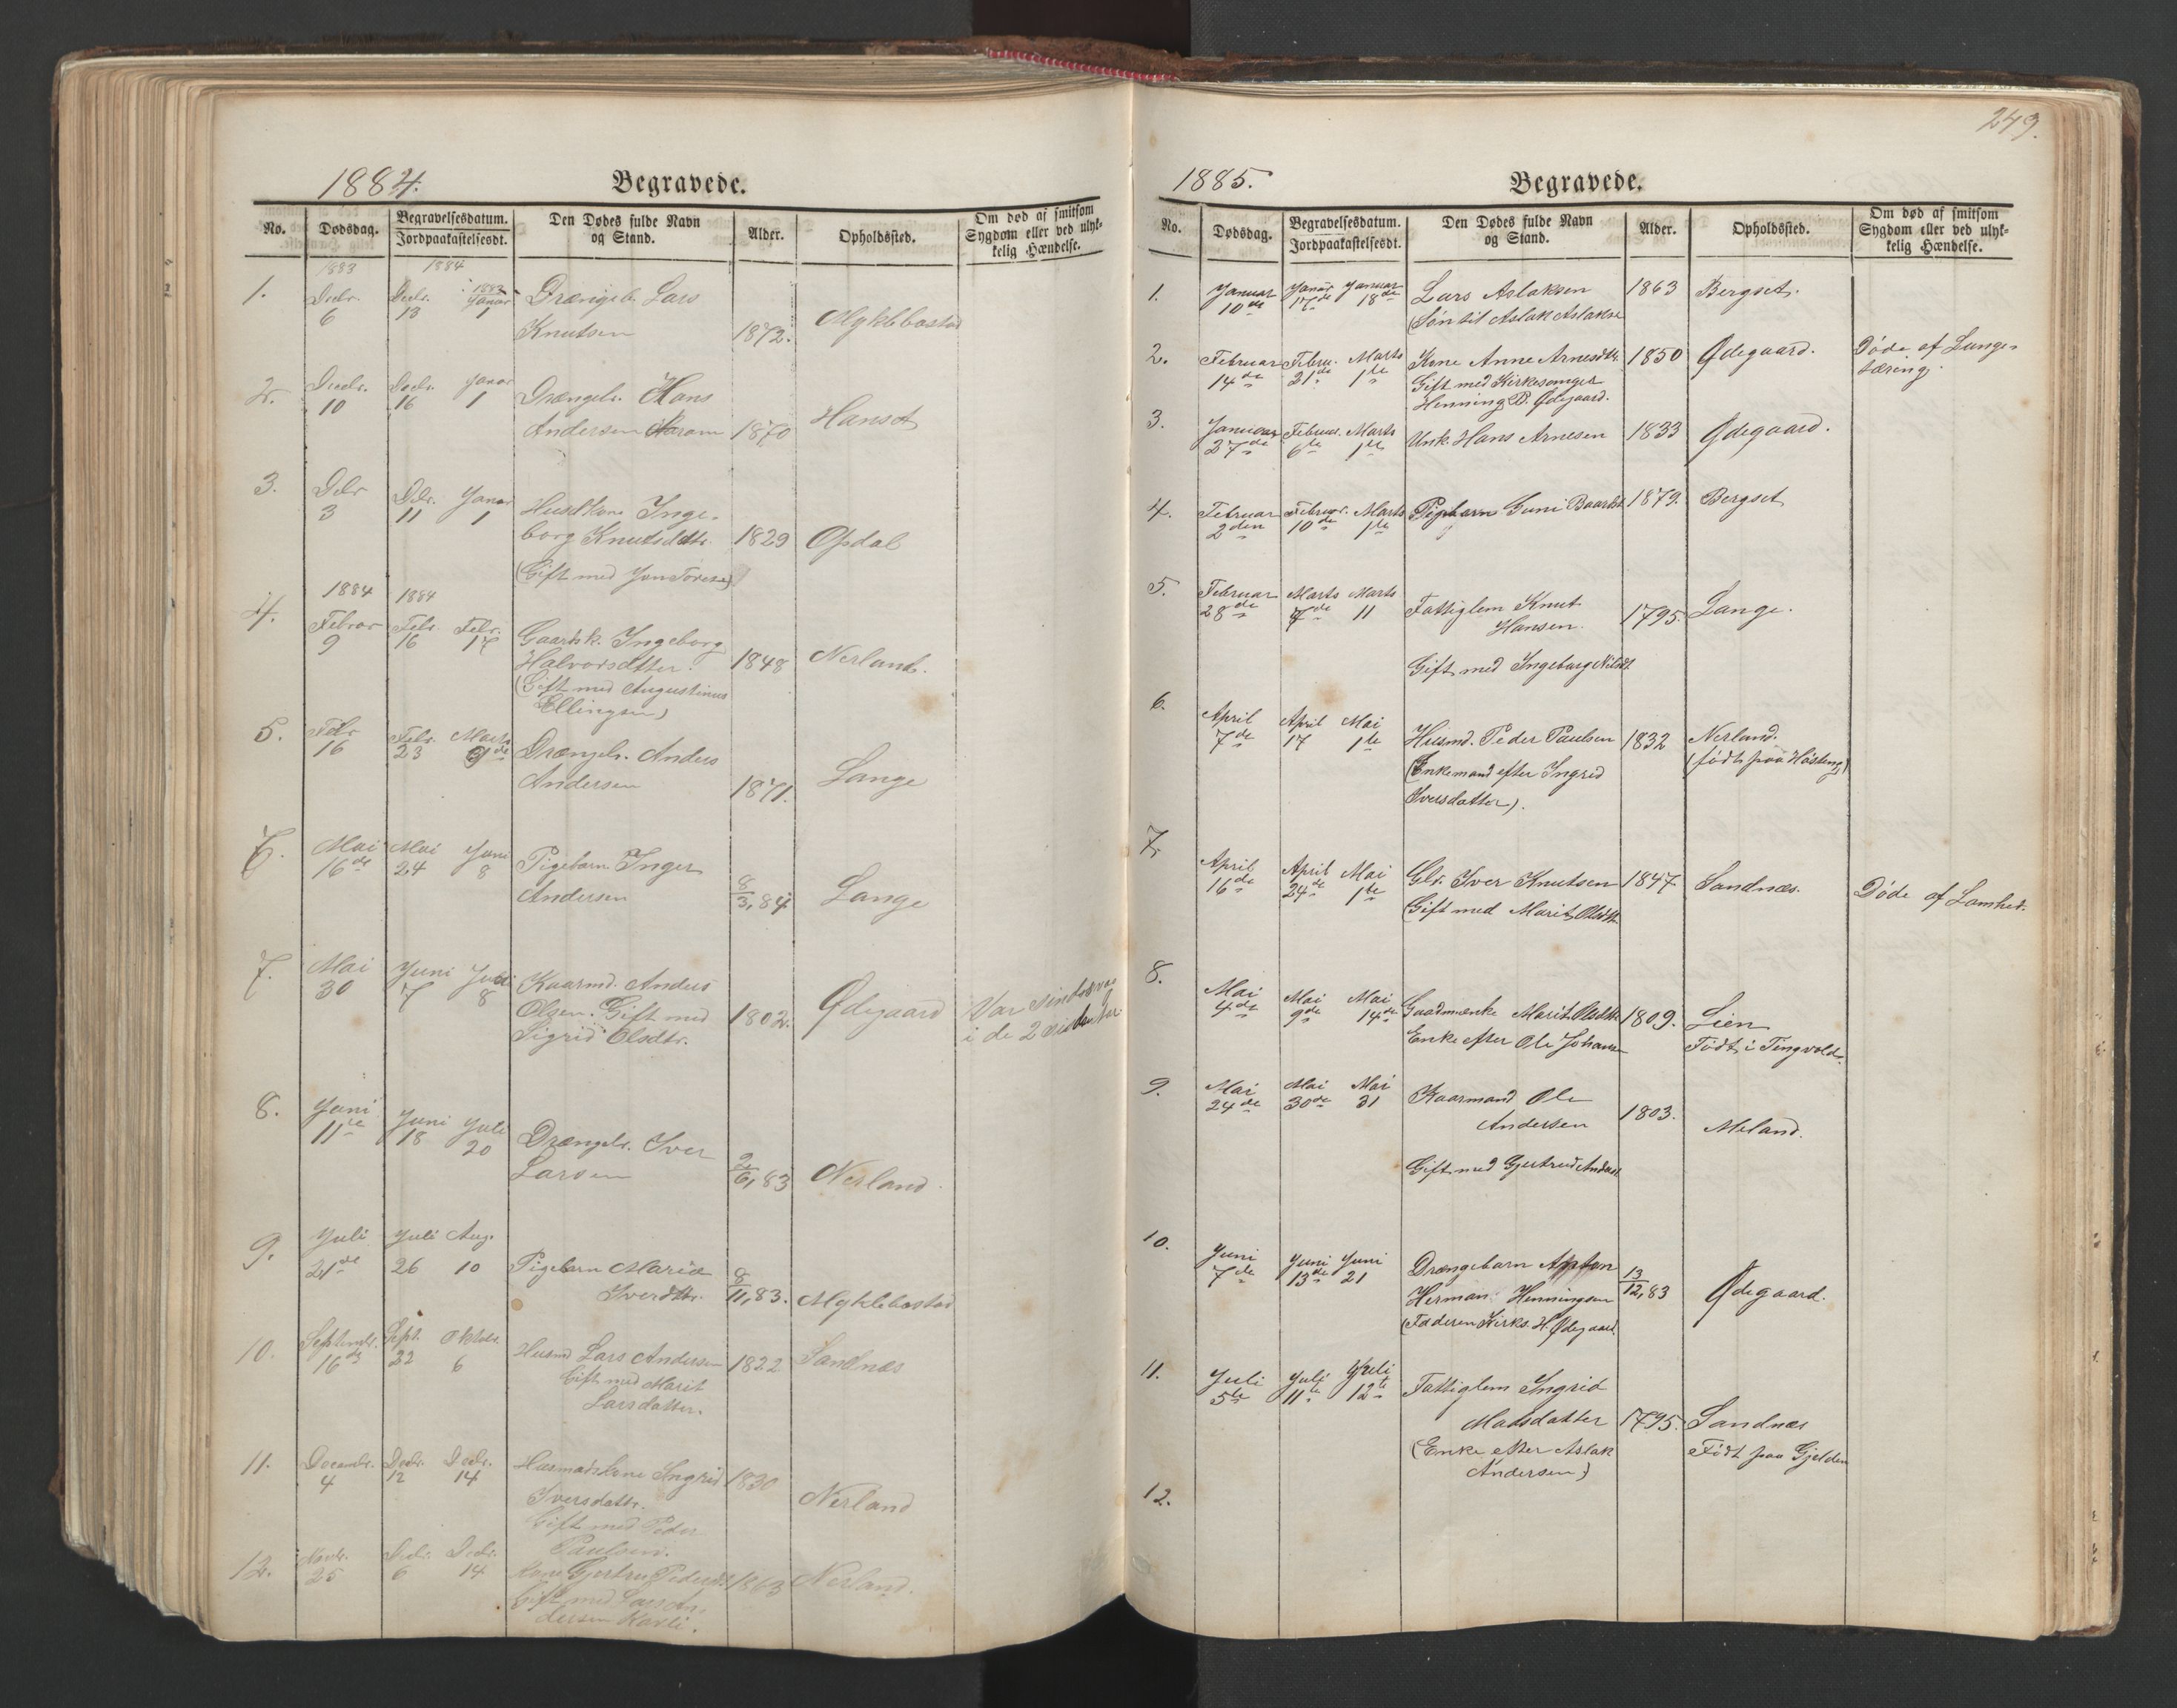 1884.
Begravede.
No.
Dødsdag.
Begravelsesdatum.
Jordpaakastelsesdt.
Den Dødes fulde Navn
og Stand.
Alder.
Opholdssted.
Om død af smitsom
Sygdom eller ved ulyk-
kelig Hændelse.
1883 1884
1. Decbr. 6 Decbr. 13 Januar 1 Drængeb. Lars
Knutsen 1872. Myklebostad
2. Decbr. 10 Decbr. 16 Januar 1 Drængeb. Hans
Andersen 1870 Hanset
3. Debr 3 Debr. 11 Januar 1 Husmkone Inge-
borg Knutsdttr. 1829 Opdal
(Gift med Jon Toresen)
1884 1884
4. Februar 9 Febr. 16 Febr. 17 Gaardk. Ingeborg
Halvorsdtter. 1848 Nerland.
(Gift med Augustinus
Ellingsen)
5. Febr 16 Febr. 23 Marts Drængeb. Anders
Andersen 1871. Lange
6. Mai 16de Mai 24 Juni 8 Pigebarn Inger
Andersen 8/3, 84 Lange
7. Mai 30 Juni 7 Juni 8 Kaarmd. Anders
Olsen. Gift med 1802. Ødegaard Var sindssvag
Sigrid Olsdtr. i de 2 sidste
8. Juni 11te Juni 18 Juli 20 Drængeb. Iver
Larsen 2/6, 83 Nerland.
9. Juli 21de Juli 26 Aug. 10 Pigebarn Marie
Iversdtr. 8/11, 83. Myklebostad
10. Septembr. 16de Sept. 22 Oktobr. 6 Husmd Lars Andersen 1822 Sandnæs
Gift med Marit
Larsdatter.
11. Decembr. 4 Decbr. 12 Decbr. 14 Husmadskone Ingrid 1830 Nerland
Iversdattr.
Gift med Peder
Paulsen.
12. Novbr. 25 Decbr. 6 Decbr. 14 Kone Gjertru Pedersdt. 1863 Nerland.
Gift med Lars An-
dersen Karli.
249.
1885.
Begravede.
No.
Dødsdag.
Begravelsesdatum.
Jordpaakastelsesdt.
Den Dødes fulde Navn
og Stand.
Alder.
Opholdssted.
Om død af smitsom
Sygdom eller ved ulyk-
kelig Hændelse.
1. Januar 10de Januar 17de Januar 18de Lars Aslaksen 1863 Bergset.
(Søn til Aslak Aslaksen
2. Februar 14de Febru. 21de Marts 1te Kone Anne Arnesdtr. 1850 Ødegaard. Døde af Lunge-
Gift med Kirkesanger tæring.
Henning P. Ødegaard.
3. Januar 27de Februar. 6te Marts 1te Unk. Hans Arnesen 1833 Ødegaard.
4. Februar 2den Februar. 10de Marts 1te Pigebarn Guni Baardsdt 1879. Bergset
5. Februar 28de Marts 7de Marts 11 Fattiglem Knut
Hansen. 1795. Lange.
Gift med Ingeborg Nilsdt
6. April 7de April 17 Mai 1te Husmd. Peder Paulsen 1832 Nerland.
(Enkemand efter Ingrid (født paa Høsteng)
Iversdatter).
7. April 16de April 24de Mai 1te Gbr. Iver Knutsen 1847 Sandnæs. Døde af Lamhed.
(Gift med Marit Olsdtr.
8. Mai 4de Mai 9de Mai 14de Gaadmenke Marit Olsdtr. 1809. Lien
Enke efter Ole Johansen Født i Tingvold.
9. Mai 24de Mai 30de Mai 31 Kaarmand Ole
Andersen 1803. Meland.
Gift med Gjertrud Andersdt
10. Juni 7de Juni 13de Juni 21 Drængebarn Anton
Herman Henningsen 13/12, 83 Ødegaard.
(Faderen Kirks. H. Ødegaard.
11. Juli 5te Juli 11te Juli 12te Fattiglem Ingrid
Madsdatter 1795. Sandnæs
(Enke efter Aslak Født paa Gjelden
Andersen)
12.